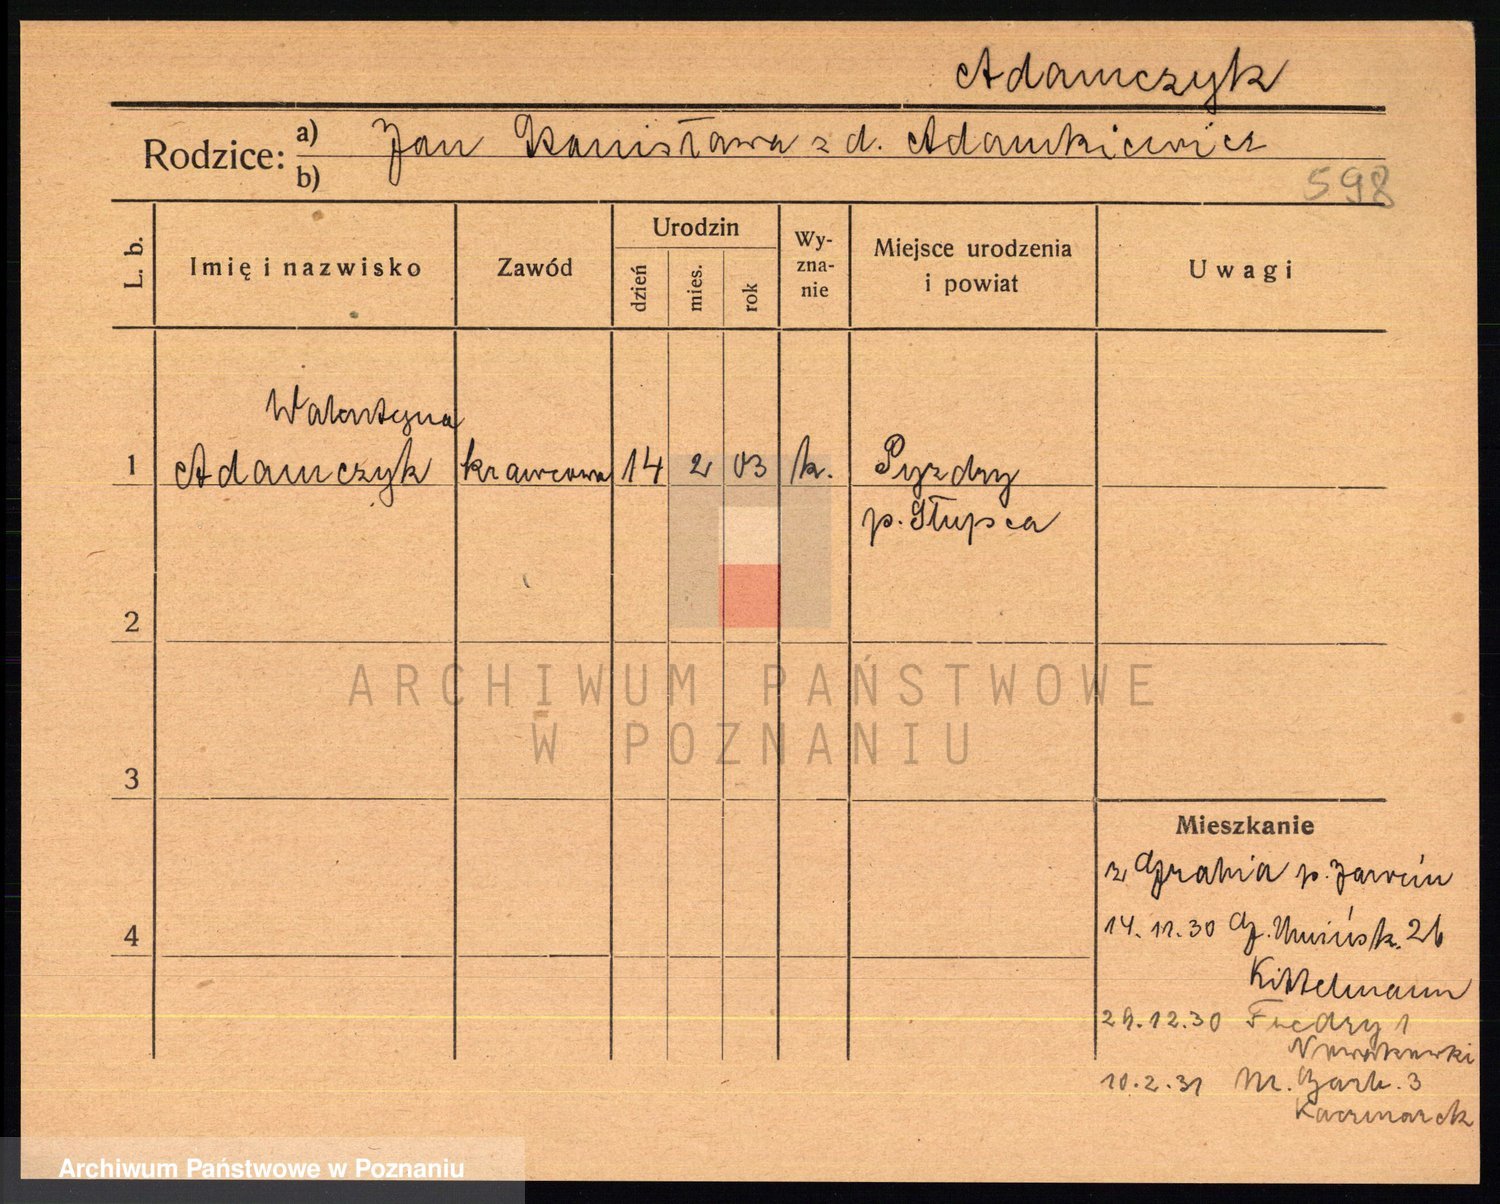 Adamczyk
Rodzice: a) Jan Stanisława z d. Adamkiewicz
b)
598
L. b. Imię i nazwisko Zawód Urodzin dzień mies. rok Wy-zna-nie Miejsce urodzenia i powiat Uwagi
Walentyna
1 Adamczyk krawcowa 14 2 03 k. Pyzdry
p. Słupca
2
ARCHIWUM PAŃSTWOWE
W POZNANIU
3
Mieszkanie
z p. Jarocin
4
14. 11. 30 G. 26
Kittelmann
29. 12. 30 Fredry 1
Nowakowski
10. 2. 31 M. Garb. 3
Kaczmarek
Archiwum Państwowe w Poznaniu